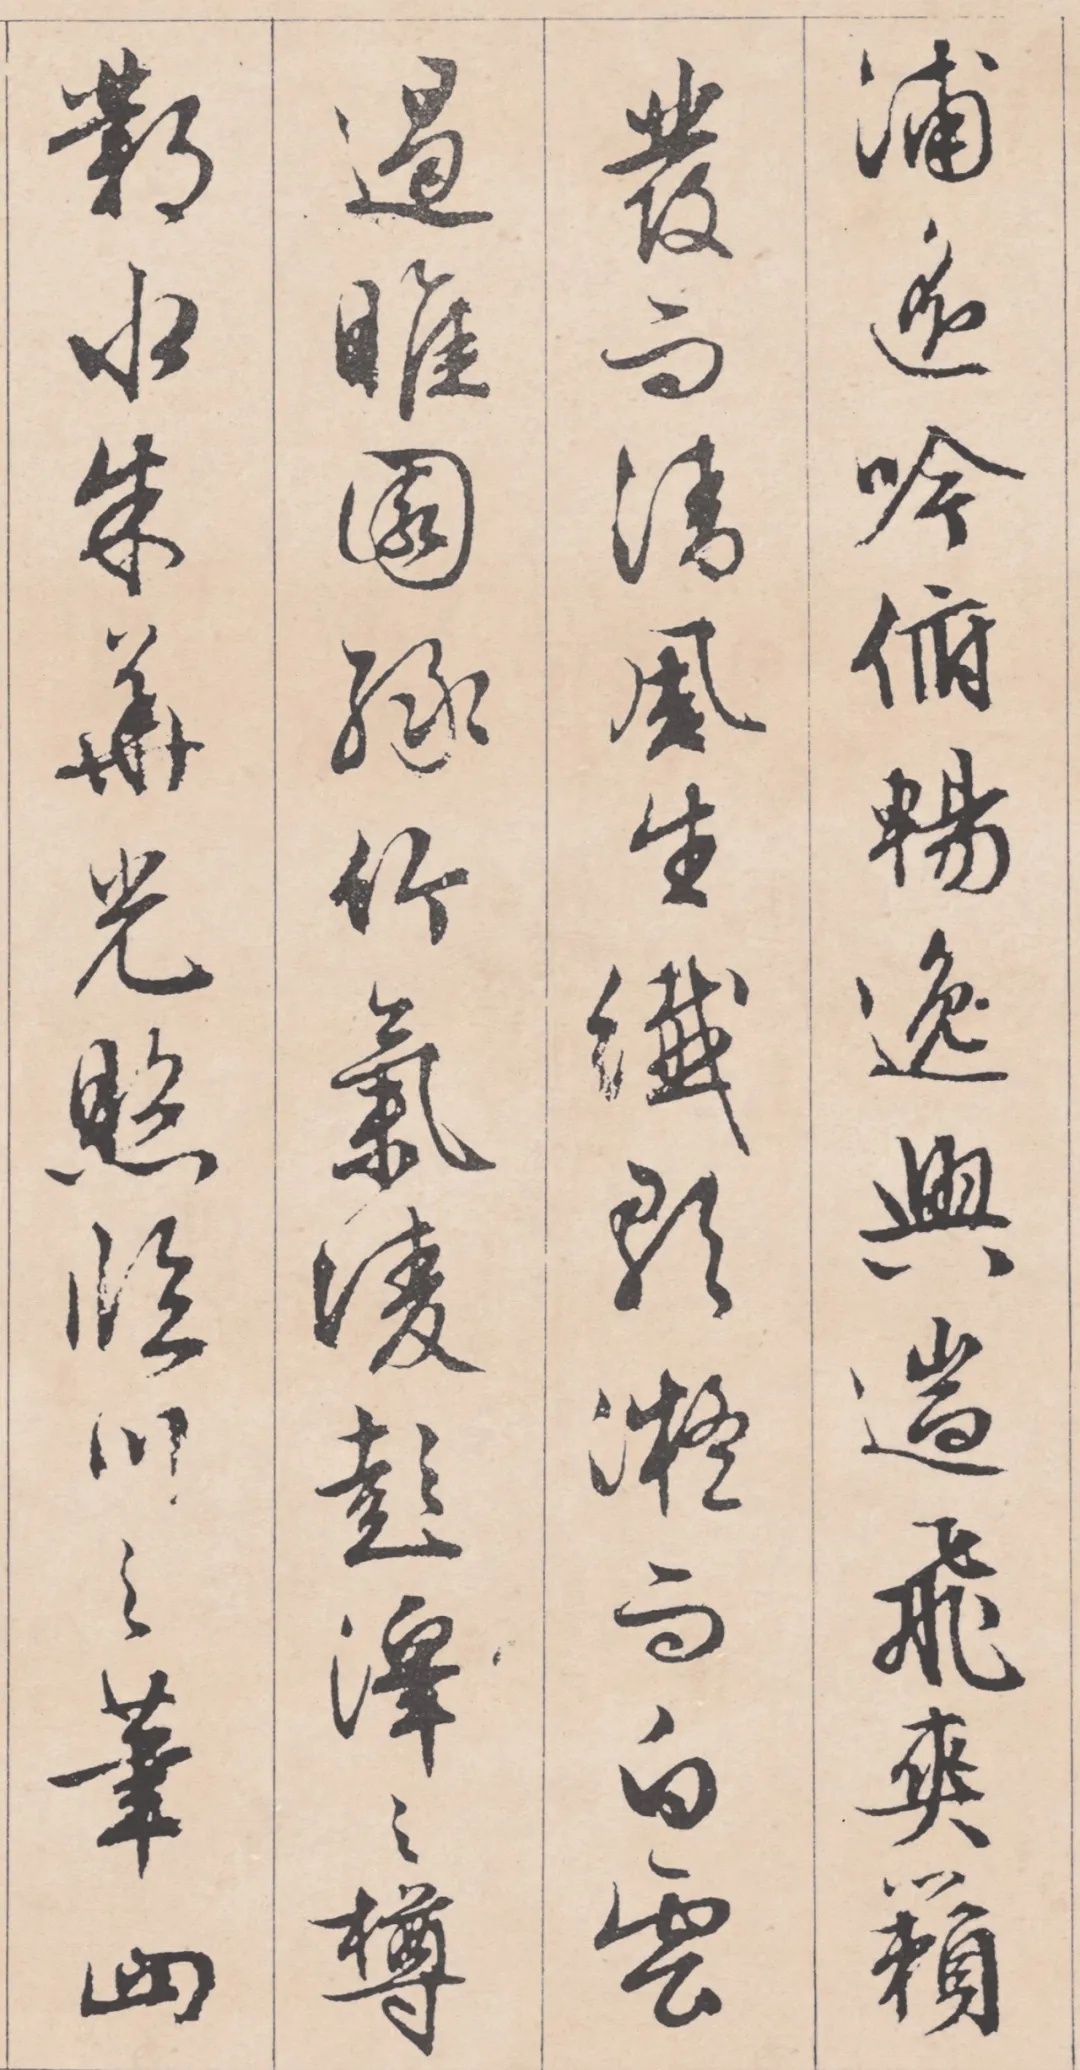 浦遥吟俯暢逸興遄飛爽籟
發而清風生纖歌凝而白雲
遏睢園綠竹氣凌彭澤之樽
鄴水朱華光照臨川之筆四